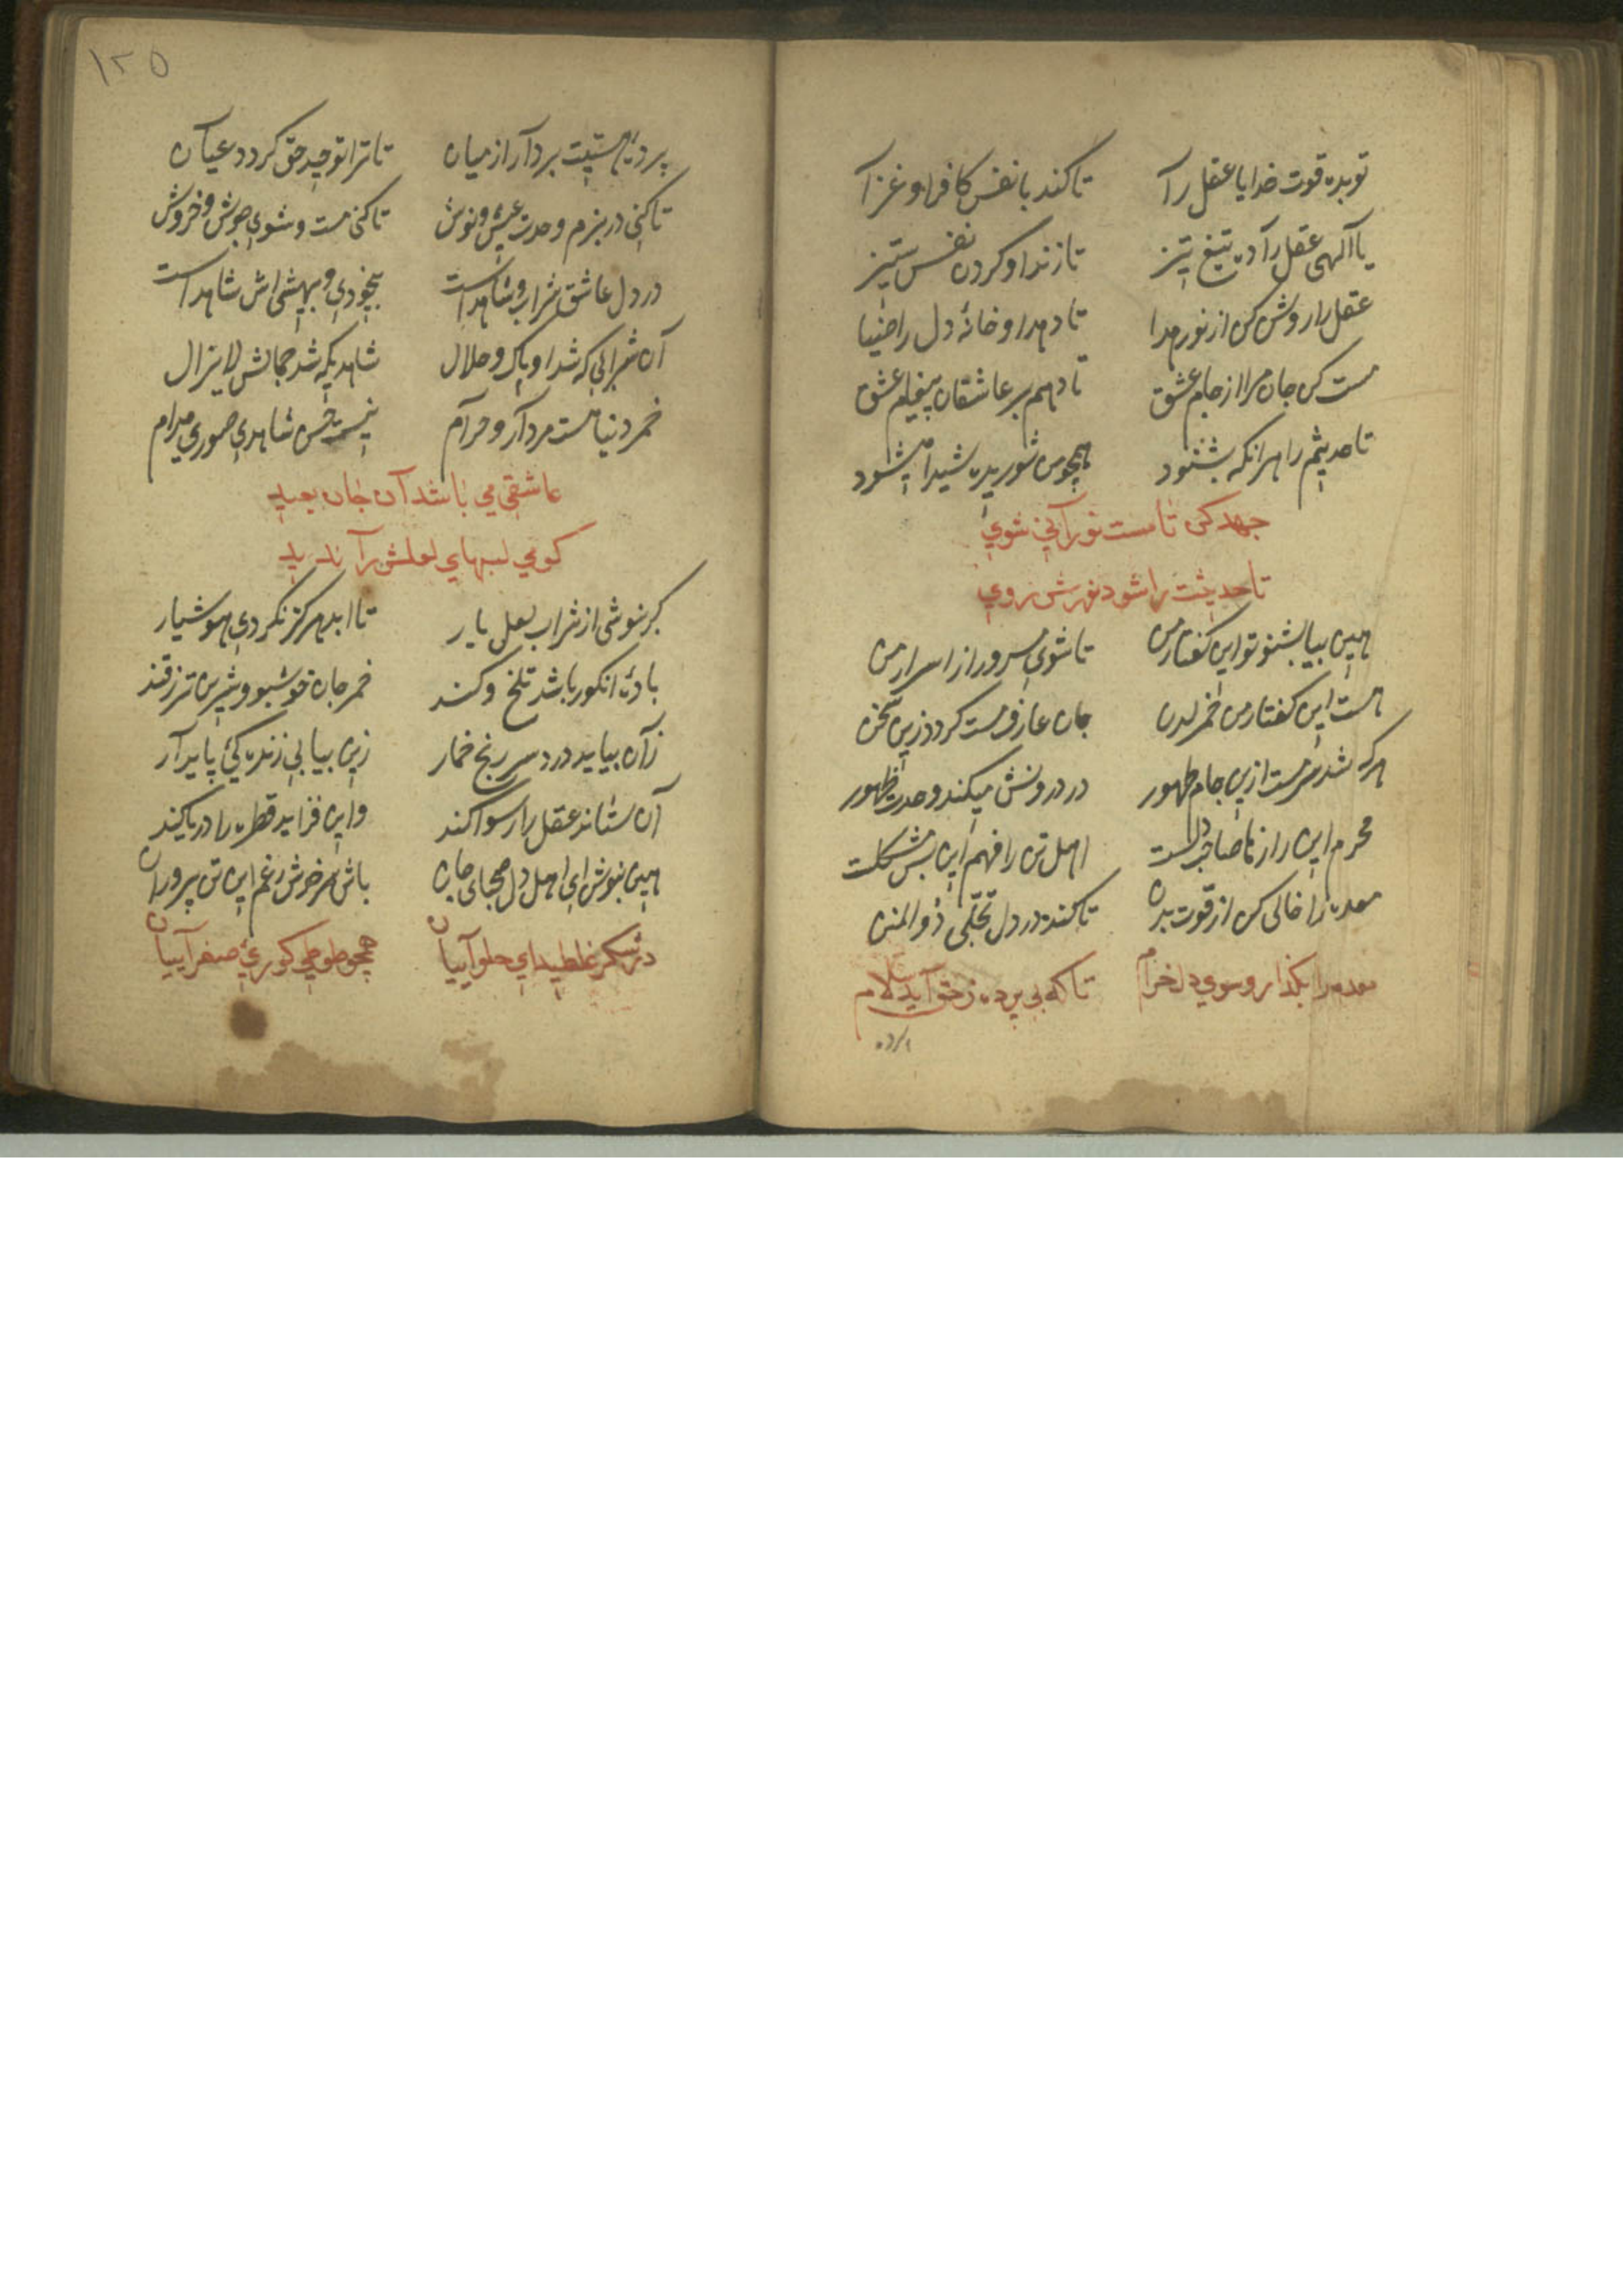 تو بده قوت خدایا عقل را تا کند با نفس کافر او غزا
یا الهی عقل را ده تیغ تیز تا زند او گردن نفس ستیز
عقل را روشن کن از نور هدا تا دهد او خانهٔ دل را ضیا
مست کن جان مرا از جام عشق تا دهم بر عاشقان پیغام عشق
تا حدیثم را هر انکه بشنود همچو من شوریده شیدا میشود
جهد کن تا مست نورانی شوی
تا حدیثت را شود نورش روی
هین بیا بشنو تو این گفتار من تا شوی مسرور از اسرار من
هست این گفتار من خمر لدن جان عارف مست گردد زین سخن
هر که شد سرمست ازین جام طهور در درونش میکند وحدت ظهور
محرم این رازها صاحب دلست اهل تن را فهم این بس مشکلست
معده را خالی کن از قوت بدن تا کند در دل تجلی ذو المنن
معده را بگذار و سوی دل خرام تا که بی پرده ز حق آید سلام
پرده
۱۲۵
پردهٔ هستیت بردار از میان تا ترا توحید حق گردد عیان
تا کنی در بزم وحدت عیش و نوش تا کنی مست و شوی جوش و خروش
در دل عاشق شراب و شاهد است بیخودی و بیهشی اش شاهد است
آن شرابی که شد او پاک و حلال شاهدیکه شد جمالش لایزال
خمر دنیا هست مردار و حرام نیست حسن شاهدی صوری مدام
عاشقی می باشد آن جان بعید
کو می لبهای لعلش را ندید
گر بنوشی از شراب لعل یار تا ابد هرگز نگردی هوشیار
بادهٔ انگور باشد تلخ و کند خمر جان خوشبو و شیرین تر ز قند
زان بیاید درد سر رنج خمار زین بیابی زنده گی پایدار
آن ستاند عقل را رسوا کند و این فزاید قطره را دریا کند
هین بنوش ای اهل دل صهبای جان باش سرخوش رغم این تن پروران
در شکر غلطید ای حلواییان همچو طوطی کوری صفراییان